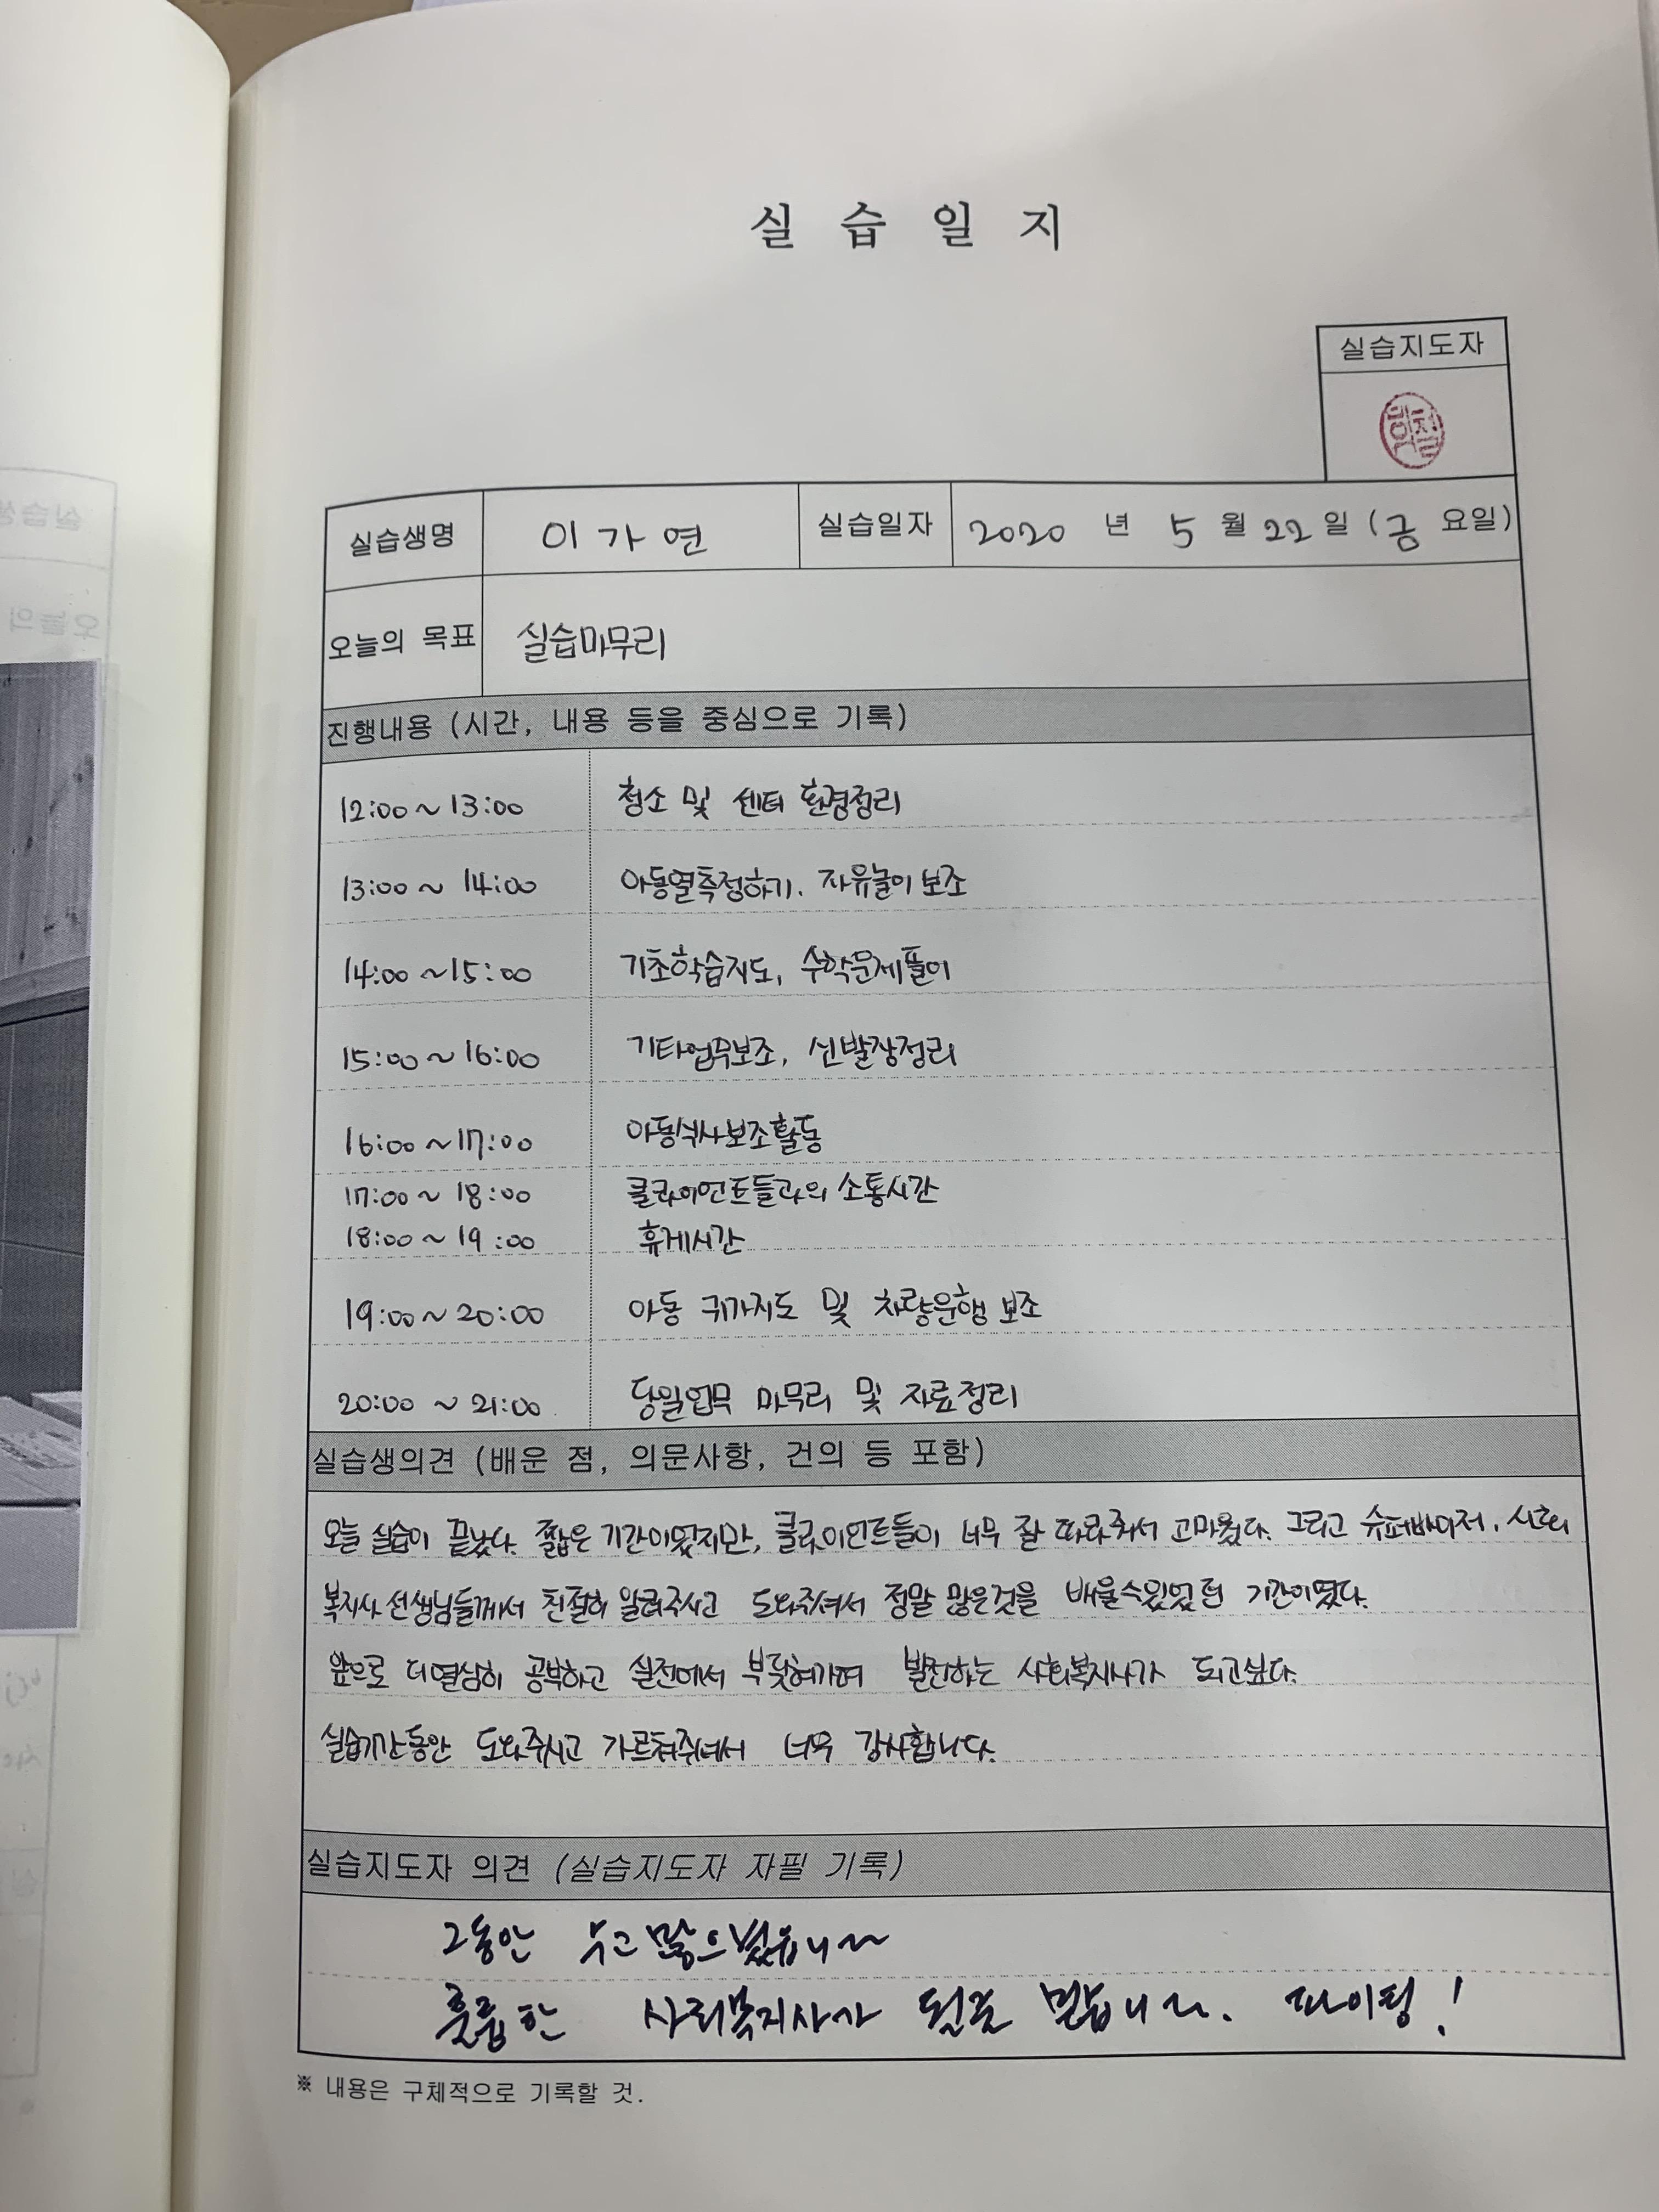 실 습 일 지
실습지도자
실습생명 이가연 실습일자 2020 년 5 월 22 일 (금 요일)
오늘의 목표 실습마무리
진행내용 (시간, 내용 등을 중심으로 기록)
12:00 ~ 13:00 청소 및 센터 환경정리
13:00 ~ 14:00 아동열측정하기. 자유놀이 보조
14:00 ~ 15:00 기초학습지도, 수학문제풀이
15:00 ~ 16:00 기타업무보조, 신발장정리
16:00 ~ 17:00 아동식사보조활동
17:00 ~ 18:00 클라이언트들과의 소통시간
18:00 ~ 19:00 휴게시간
19:00 ~ 20:00 아동 귀가지도 및 차량운행 보조
20:00 ~ 21:00 당일업무 마무리 및 자료정리
실습생의견 (배운 점, 의문사항, 건의 등 포함)
오늘 실습이 끝났다. 짧은 기간이었지만, 클라이언트들이 너무 잘 따라줘서 고마웠다. 그리고 슈퍼바이저, 사회
복지사 선생님들께서 친절히 알려주시고 도와주셔서 정말 많은것을 배울수있었던 기간이였다.
앞으로 더열심히 공부하고 실전에서 부딪혀가며 발전하는 사회복지사가 되고싶다.
실습기간동안 도와주시고 가르쳐주셔서 너무 감사합니다.
실습지도자 의견 (실습지도자 자필 기록)
그동안 수고 많으셨습니다
훌륭한 사회복지사가 될걸 믿습니다. 파이팅!
※ 내용은 구체적으로 기록할 것.
실습생
오늘의